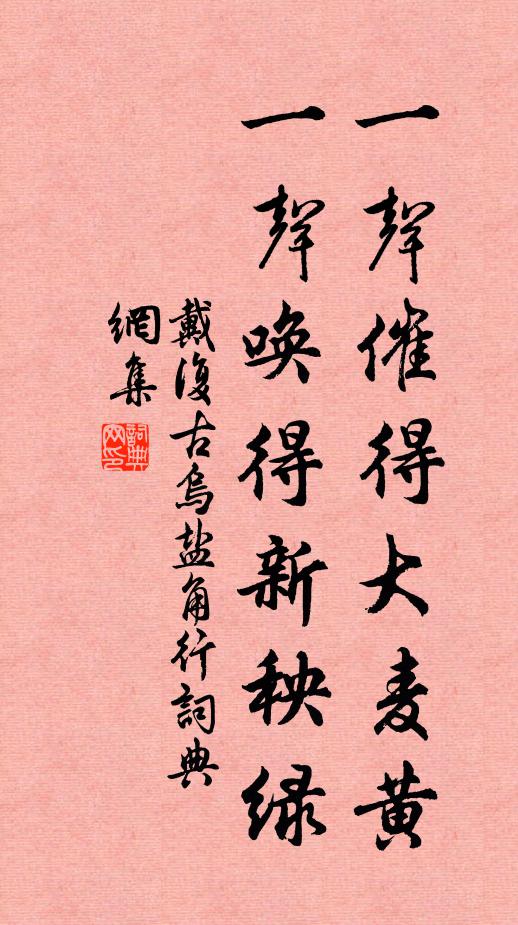 一聲催得大麦黄
一聲唤得新秧緑
戴復古烏盐角行詞典
網集
詞典網印